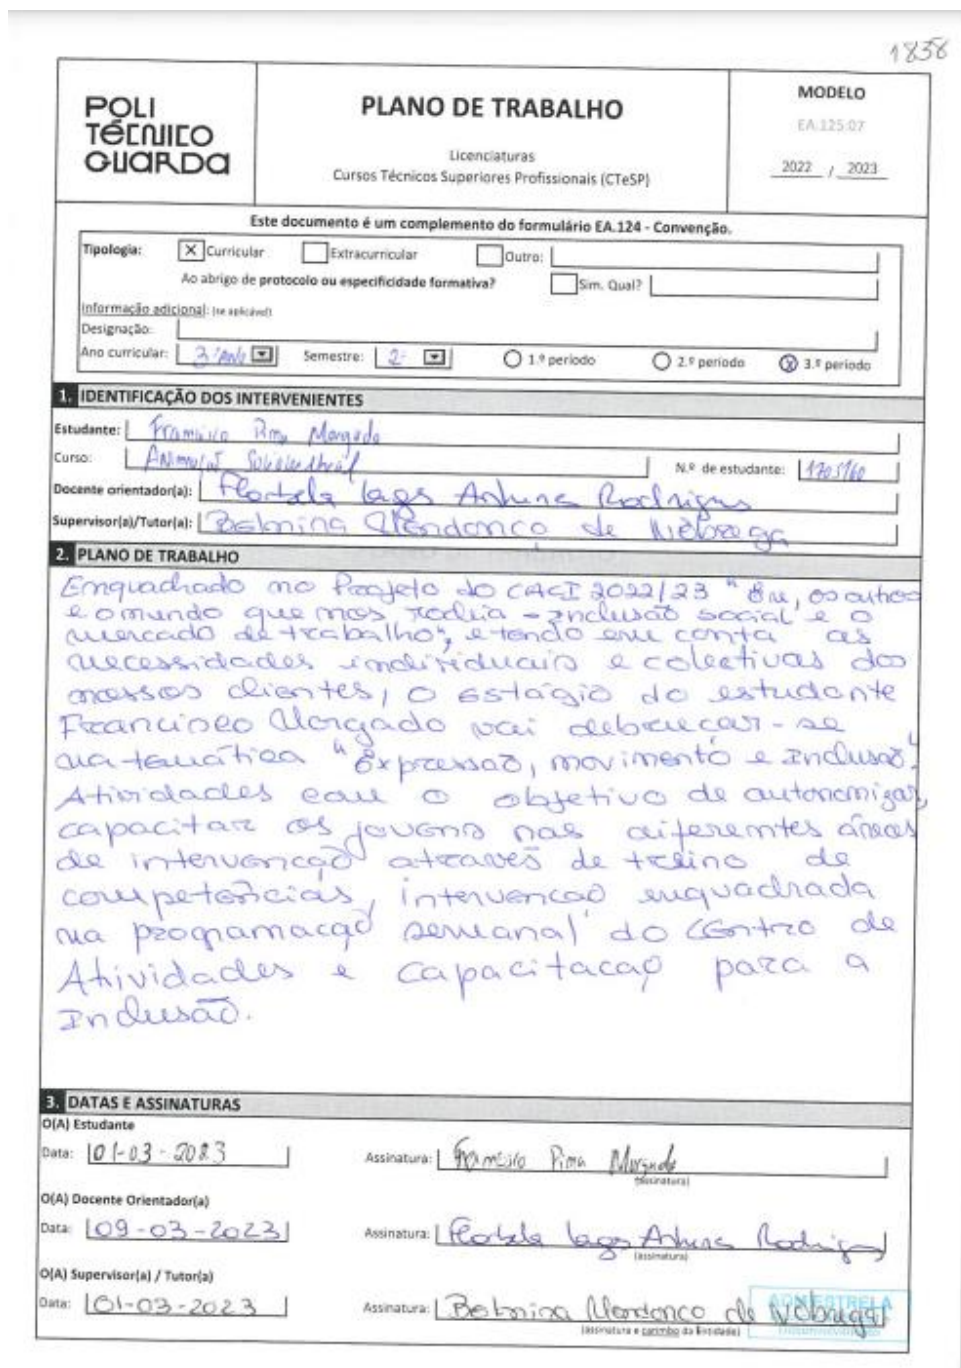 1838
POLI
TÉCNICO
GUARDA
PLANO DE TRABALHO
Licenciaturas
Cursos Técnicos Superiores Profissionais (CTeSP)
MODELO
EA.125.07
2022 / 2023
Este documento é um complemento do formulário EA.124 - Convenção.
Tipologia: X Curricular Extracurricular Outro:
Ao abrigo de protocolo ou especificidade formativa? Sim. Qual?
Informação adicional: (se aplicável)
Designação:
Ano curricular: 3º Ano Semestre: 2º 1.º período 2.º período X 3.º período
1. IDENTIFICAÇÃO DOS INTERVENIENTES
Estudante: Francisco Pina Morgado
Curso: Animação Sociocultural N.º de estudante: 1705160
Docente orientador(a): Florbela Lages Antunes Rodrigues
Supervisor(a)/Tutor(a): Mendonça de Nóbrega
2. PLANO DE TRABALHO
Enquadrado no Projeto do CACI 2022/23 "Eu, os outros
e o mundo que nos rodeia - Inclusão social e o
mercado de trabalho", e tendo em conta as
necessidades individuais e colectivas dos
nossos clientes, o estágio do estudante
Francisco Morgado vai debruçar-se
na temática "Expressão, movimento e Inclusão".
Atividades com o objetivo de autonomizar,
capacitar os jovens nas diferentes áreas
de intervenção através de treino de
competências, intervenção enquadrada
na programação semanal do Centro de
Atividades e Capacitação para a
Inclusão.
3. DATAS E ASSINATURAS
O(A) Estudante
Data: 01-03-2023 Assinatura: Francisco Pina Morgado
(assinatura)
O(A) Docente Orientador(a)
Data: 09-03-2023 Assinatura: Florbela Lages Antunes Rodrigues
(assinatura)
O(A) Supervisor(a) / Tutor(a)
Data: 01-03-2023 Assinatura: Mendonça de Nóbrega
(assinatura e carimbo da Entidade)